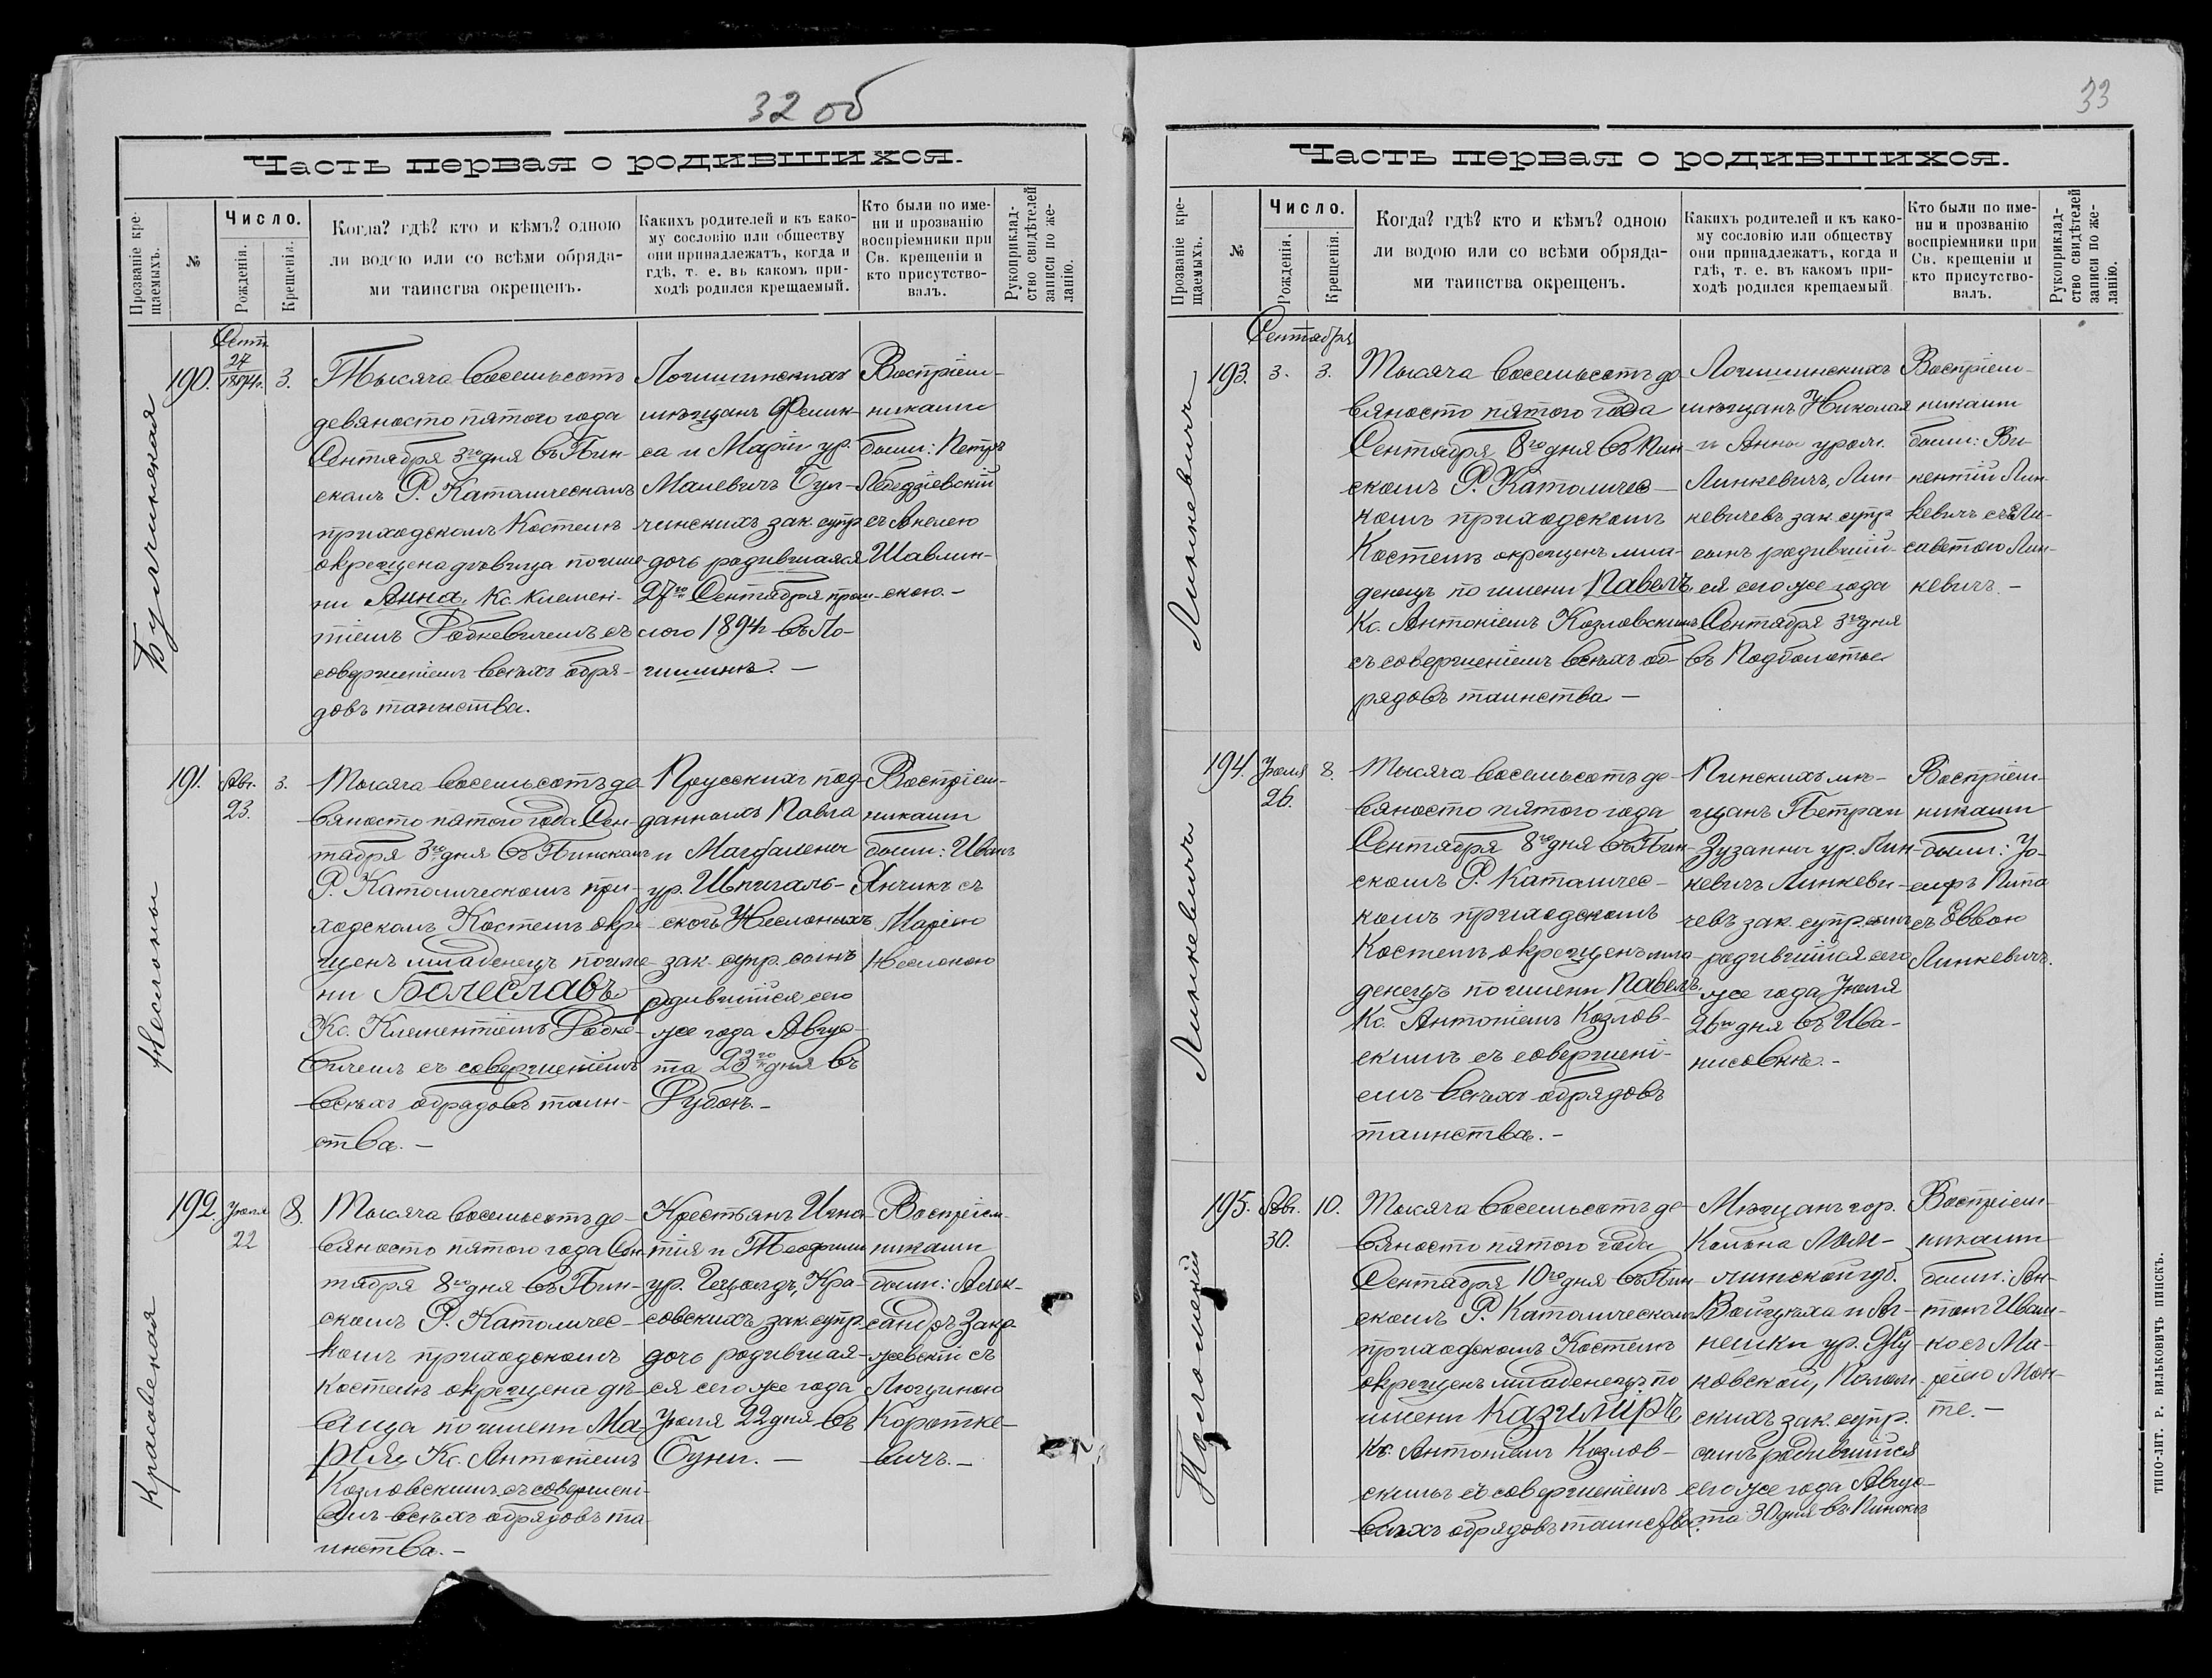 32 об
Часть первая о родившихся.
Прозваніе кре-
щаемыхъ.
№
Число.
Рожденія.
Крещенія.
Когда? гдѣ? кто и кѣмъ? одною
ли водою или со всѣми обряда-
ми таинства окрещенъ.
Какихъ родителей и къ како-
му сословію или обществу
они принадлежатъ, когда и
гдѣ, т. е. въ какомъ при-
ходѣ родился крещаемый.
Кто были по име-
ни и прозванію
воспріемники при
Св. крещеніи и
кто присутство-
валъ.
Рукоприклад-
ство свидѣтелей
записи по же-
ланію.
Булчинская
190.
Сент.
27
1894г.
3.
Тысяча восемьсотъ
девяносто пятого года
Сентября 3го дня въ Пин-
скомъ Р. Католическомъ
приходскомъ Костелѣ
окрещена дѣвица по име-
ни Анна, Кс. Клемен-
тіемъ Родкевичемъ съ
совершеніемъ всѣхъ обря-
довъ таинства.
Логишинскихъ
мѣщанъ Фелик-
са и Маріи ур.
Малевичъ Бул-
чинскихъ зак. супр.
дочь родившаяся
27го Сентября прош-
лого 1894г. въ Ло-
гишинѣ. —
Воспріем-
никами
были: Петръ
Лебедзіевскій
съ Анелею
Шавлин-
скою. —
Неслоны
191.
Авг.
23.
3.
Тысяча восемьсотъ де-
вяносто пятого года Сен-
тября 3го дня въ Пинскомъ
Р. Католическомъ при-
ходскомъ Костелѣ окре-
щенъ младенецъ по име-
ни Болеславъ
Кс. Клементіемъ Родке-
вичемъ съ совершеніемъ
всѣхъ обрядовъ таин-
ства. —
Прусскихъ под-
данныхъ Павла
и Магдалены
ур. Шпигаль-
ской Неслоныхъ
зак. супр. сынъ
родившійся сего
же года Авгус-
та 23го дня въ
Воспріем-
никами
были: Иванъ
Янчикъ съ
Маріею
Неслоною
Красовская
192.
Іюля
22
8.
Тысяча восемьсотъ де-
вяносто пятого года Сен-
тября 8го дня въ Пин-
скомъ Р. Католичес-
комъ приходскомъ
Костелѣ окрещена дѣ-
вица по имени Ма-
рія, Кс. Антоніемъ
Козловскимъ съ совершені-
емъ всѣхъ обрядовъ та-
инства. —
Крестьянъ Игна-
тія и Теофиліи
ур. Гецольдъ, Кра-
совскихъ зак. супр.
дочь родившая-
ся сего же года
Іюля 22 дня въ
Воспріем-
никами
были: Алек-
сандръ Закр-
жевскій съ
Люциною
Коротке-
вичъ. —
33
Часть первая о родившихся.
Прозваніе кре-
щаемыхъ.
№
Число.
Рожденія.
Крещенія.
Когда? гдѣ? кто и кѣмъ? одною
ли водою или со всѣми обряда-
ми таинства окрещенъ.
Какихъ родителей и къ како-
му сословію или обществу
они принадлежатъ, когда и
гдѣ, т. е. въ какомъ при-
ходѣ родился крещаемый
Кто были по име-
ни и прозванію
воспріемники при
Св. крещеніи и
кто присутство-
валъ.
Рукоприклад-
ство свидѣтелей
записи по же-
ланію.
Линкевичъ
193.
Сентября
3.
3.
Тысяча восемьсотъ де-
вяносто пятого года
Сентября 8го дня въ Пин-
скомъ Р. Католичес-
комъ приходскомъ
Костелѣ окрещенъ мла-
денецъ по имени Павелъ
Кс. Антоніемъ Козловскимъ
съ совершеніемъ всѣхъ об-
рядовъ таинства —
Логишинскихъ
мѣщанъ Николая
и Анны урож.
Линкевичъ, Лин-
кевичевъ зак. супр.
сынъ родившій-
ся сего же года
Сентября 3го дня
въ Подболотье
Воспріем-
никами
были: Ви-
кентій Лин-
кевичъ съ Ели-
саветою Лин-
кевичъ. —
Линкевичъ
194.
Іюля
26.
8.
Тысяча восемьсотъ де-
вяносто пятого года
Сентября 8го дня въ Пин-
скомъ Р. Католичес-
комъ приходскомъ
Костелѣ окрещенъ мла-
денецъ по имени Павелъ
Кс. Антоніемъ Козлов-
скимъ съ совершені-
емъ всѣхъ обрядовъ
таинства. —
Пинскихъ мѣ-
щанъ Петра и
Зузанны ур. Лин-
кевичъ Линкеви-
чевъ зак. супр. сынъ
родившійся сего
же года Іюля
26го дня въ Ива-
нисовкѣ. —
Воспріем-
никами
были: Іо-
сифъ Липа
съ Еввою
Линкевичъ.
195.
Авг.
30.
10.
Тысяча восемьсотъ де-
вяносто пятого года
Сентября 10го дня въ Пин-
скомъ Р. Католическомъ
приходскомъ Костелѣ
окрещенъ младенецъ по
имени Казиміръ
Кс. Антоніемъ Козлов-
скимъ съ совершеніемъ
всѣхъ обрядовъ таинства.
Мѣщанъ гор.
Кольна Лом-
жинской губ.
Войцѣха и Аг-
нешки ур. Жу-
ковской,
скихъ зак. супр.
сынъ родившійся
сего же года Авгус-
та 30 дня въ Пинскѣ
Воспріем-
никами
были: Ан-
тонъ Иваш-
ко съ Ма-
ріею Мон-
те. —
ТИПО-ЛИТ. Р. ВИЛЬКОВИЧЪ ПИНСКЪ.